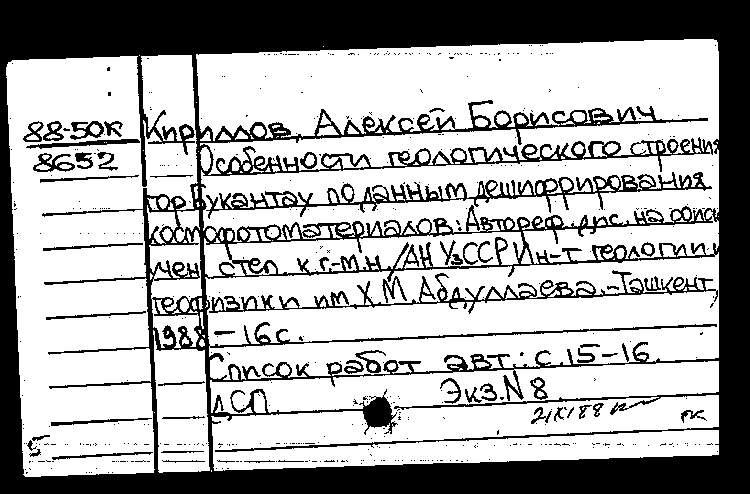 88-50К Кириллов, Алексей Борисович
8652 Особенности геологического строения
гор Букантау по данным дешифрирования
космофотоматериалов: Автореф. дис. на соиск
учен степ к.г.-м.н. /АН УзССР, Ин-т геологии и
геофизики им. Х.М. Абдуллаева.-Ташкент,
1988 - 16с.
Список работ авт.: с.15-16.
ДСП. Экз.N 8
5